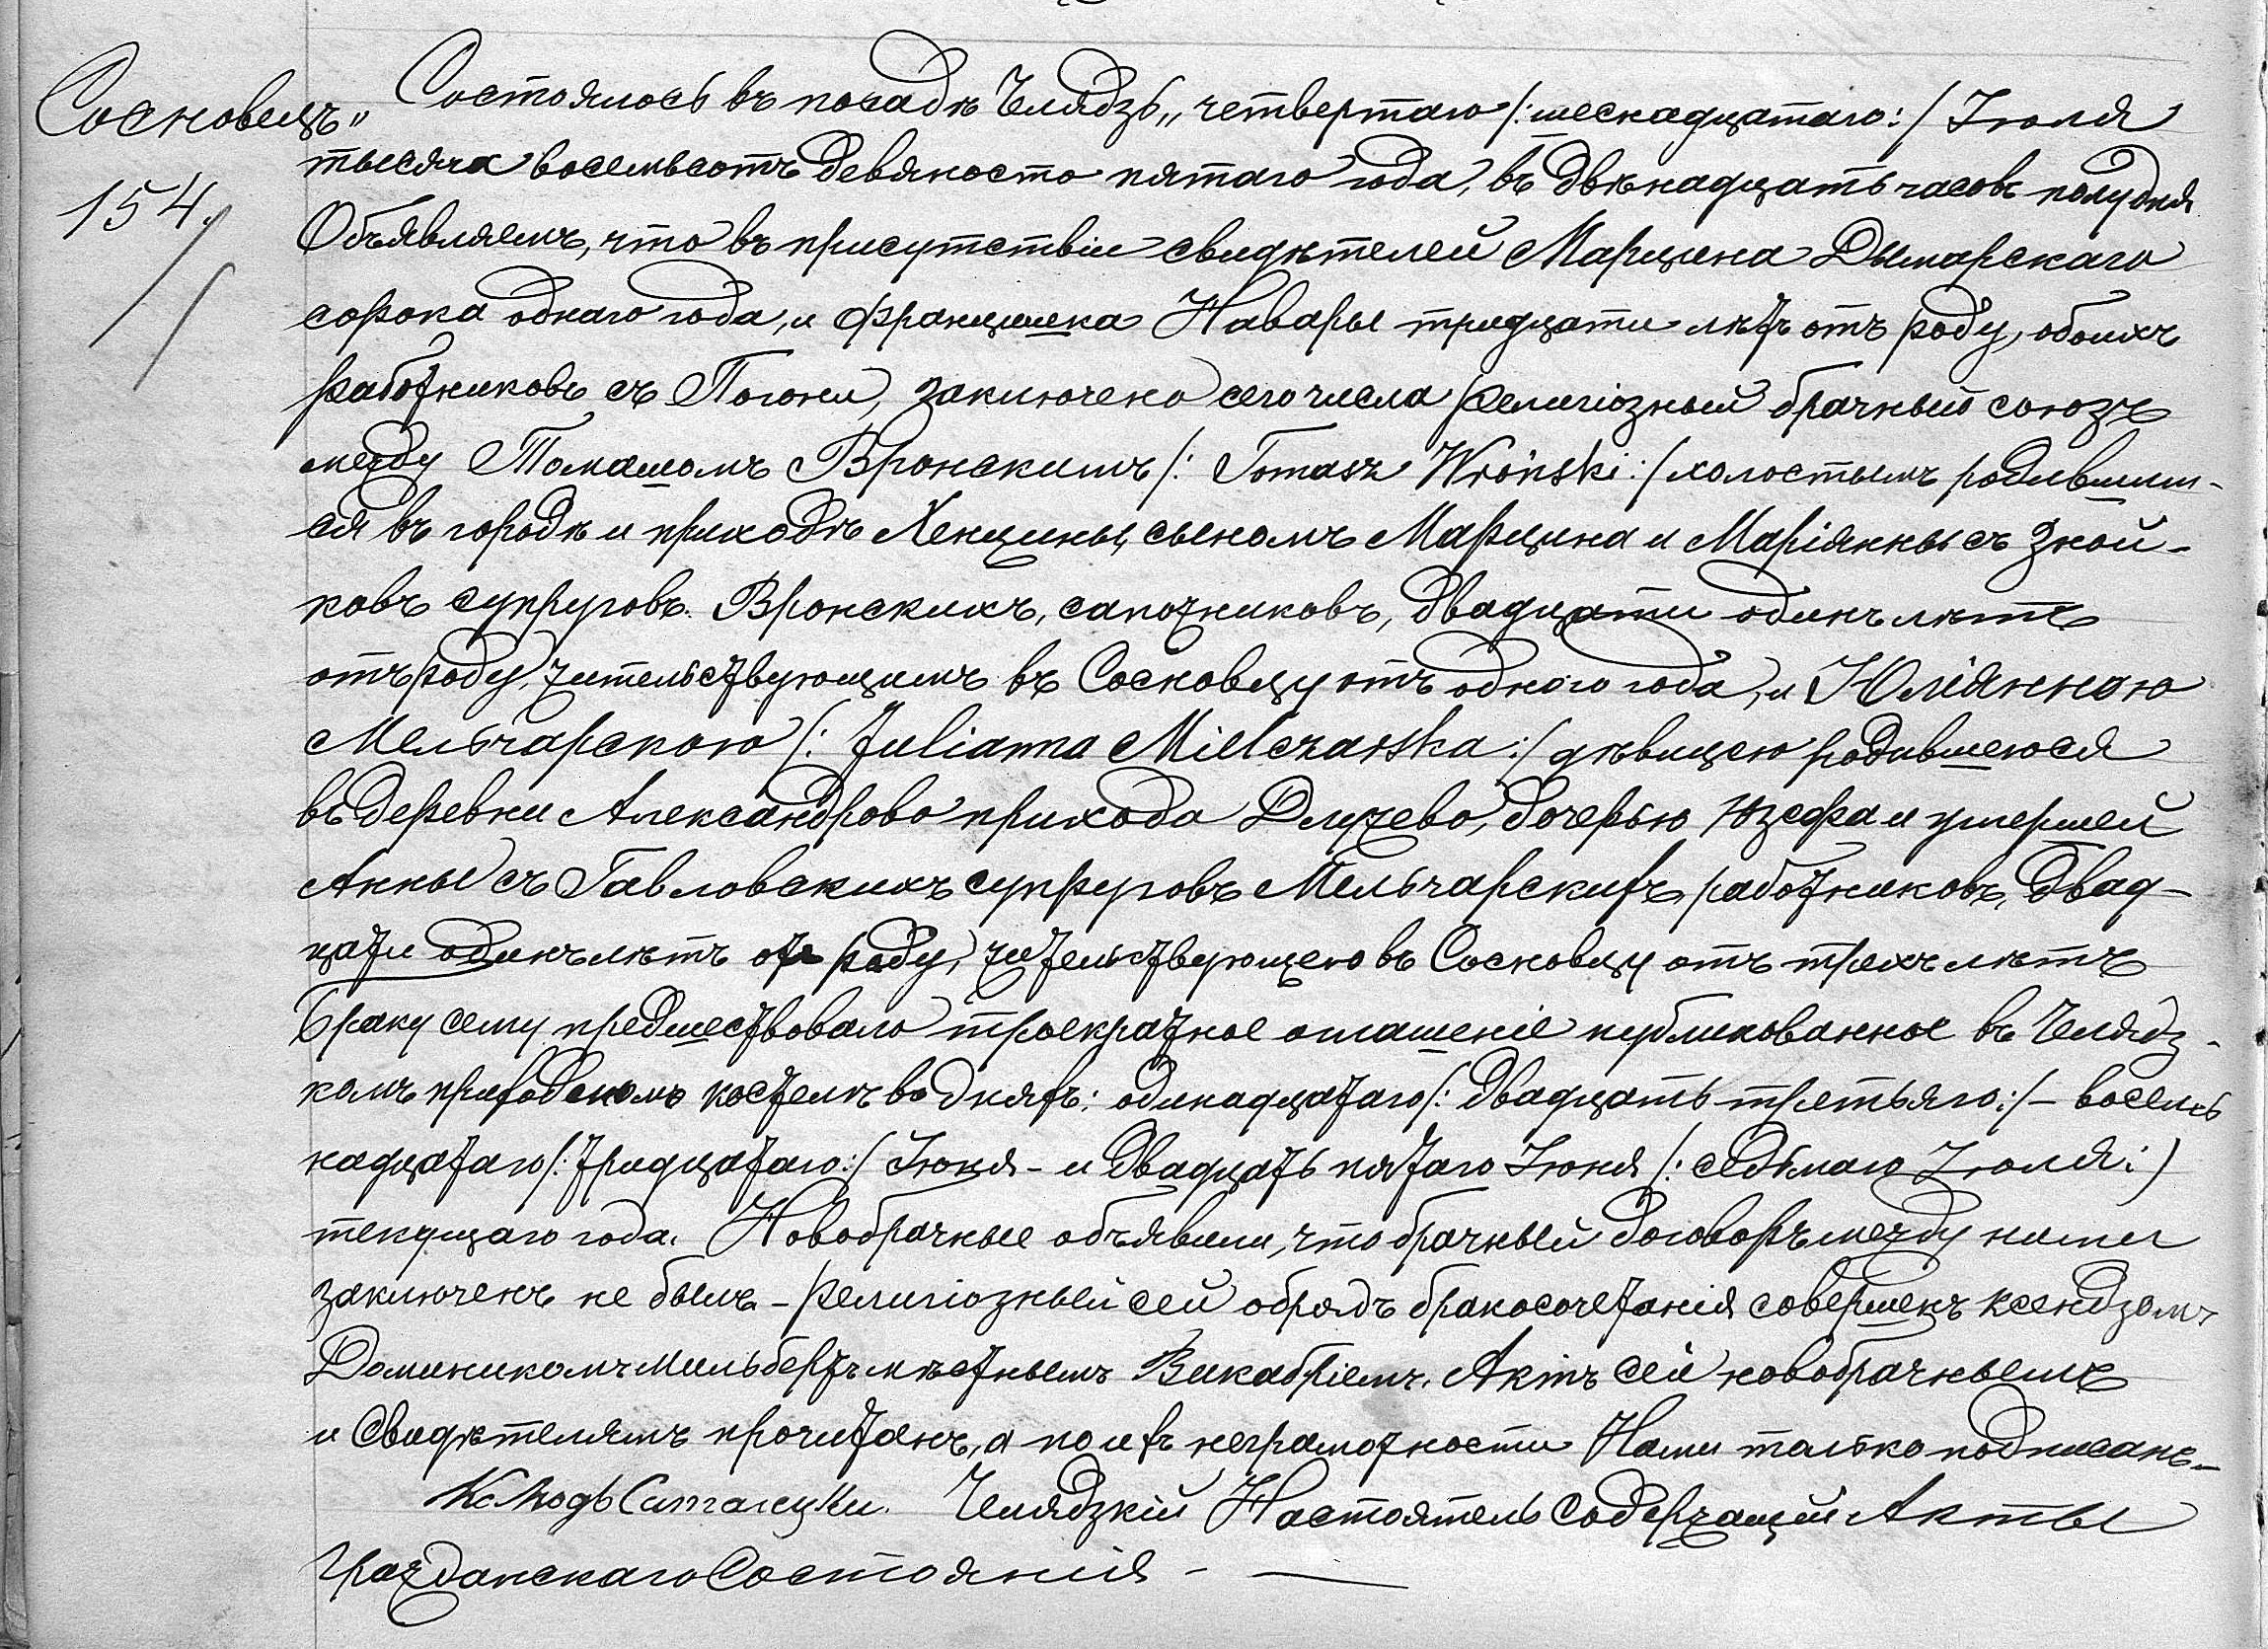 Сосновецъ„
154.
Состоялось въ посадѣ Челядзь„ четвертаго /:шеснадцатаго:/ Іюля
тысяча восемьсотъ девяносто пятаго года, въ двѣнадцать часовъ полудня
Объявляемъ, что въ присутствіи свидѣтелей Марцина Дымарскаго
сорока однаго года, и Францишка Навары тридцати лѣтъ отъ роду, обоихъ
работниковъ съ Погони, заключено сего числа религіозный брачный союзъ
между Томашомъ Вронскимъ /: Tomasz Wroński :/ холостымъ родившим-
ся въ городѣ и приходѣ Хенцины, сыномъ Марцина и Маріянны съ Зной-
ковъ супруговъ Вронскихъ, сапожниковъ, двадцати одинъ лѣтъ
отъ роду, жительствующимъ въ Сосновцу отъ одного года, и Юліянною
Мельчарскою /: Julianna Mielczarska :/ дѣвицею родившеюся
въ деревни Александрово прихода Длужево, дочерью Юзефа и умершей
Анны съ Гавловскихъ супруговъ Мельчарскихъ, работниковъ, двад-
цати одинъ лѣтъ отъ роду, жительствующею въ Сосновцу отъ трехъ лѣтъ
Браку сему предшествовало троекратное оглашеніе публикованное въ Челядз-
комъ приходскомъ костелѣ во дняхъ: одинадцатаго /: двадцать третьяго :/ - восемь
надцатаго /: тридцатаго :/ Іюня - и двадцать пятаго Іюня /: седьмаго Іюля :/
текущаго года. Новобрачные объявили, что брачный договоръ между ними
заключенъ не былъ. - Религіозный сей обрядъ бракосочетанія совершенъ ксендзомъ
Доминикомъ Мильбертъ мѣстнымъ Викаріемъ. Актъ сей новобрачнымъ
и свидѣтелямъ прочитанъ, а по ихъ неграмотности Нами только подписанъ. -
Челядзкій Настоятель Содержащій Акты
Гражданскаго Состоянія -